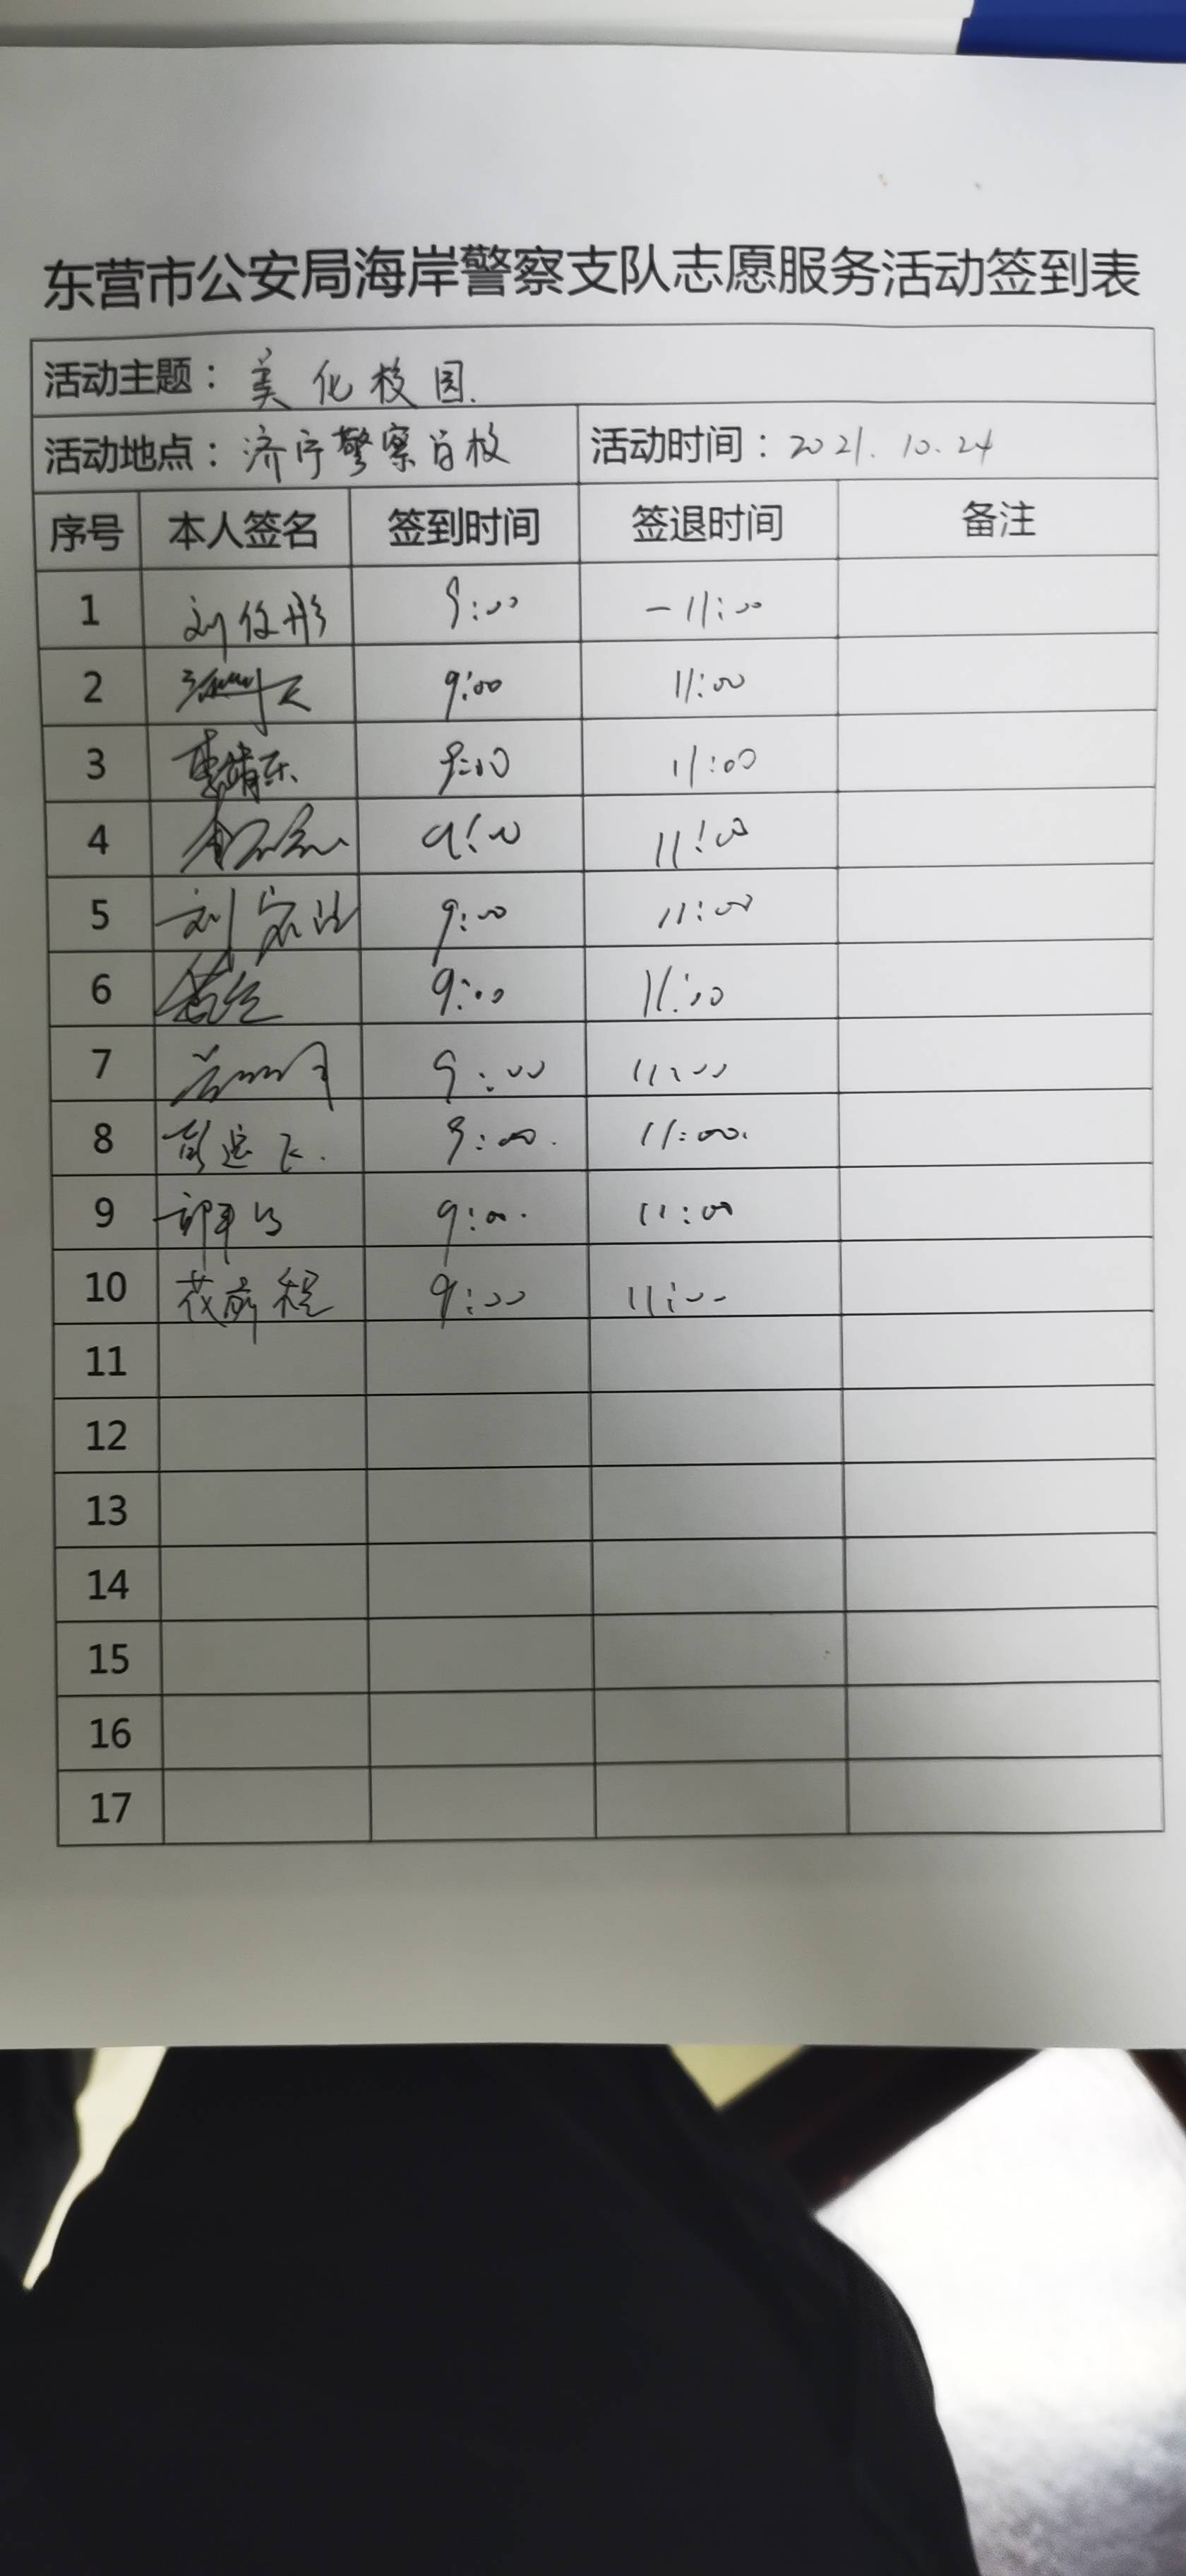 东营市公安局海岸警察支队志愿服务活动签到表
活动主题：美化校园.
活动地点：济宁警察官校 活动时间：2021.10.24
序号 本人签名 签到时间 签退时间 备注
1 刘 9:00 —11:00
2 9:00 11:00
3 9:00 11:00
4 9:00 11:00
5 刘 9:00 11:00
6 9:00 11:00
7 9:00 11:00
8 9:00. 11:00.
9 9:00. 11:00
10 前程 9:00 11:00
11
12
13
14
15
16
17